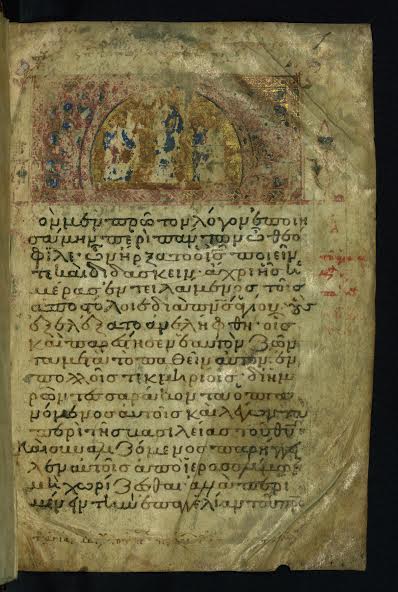 ὸν μὲν πρῶτον λόγον ἐποιη
σάμην περὶ πάντων ὦ θεό
φιλε ὧν ἤρξατο ὁ ις ποιεῖν
τε καὶ διδάσκειν ἄχρι ἧς ἡ
μέρας ἐντειλάμενος τοῖς
ἀποστόλοις διὰ πνς ἁγίου οὓς
ἐξελέξατο ἀνελήφθη οἷς
καὶ παρέστησεν ἑαυτὸν ζῶν
τα μετὰ τὸ παθεῖν αὐτὸν ἐν
πολλοῖς τεκμηρίοις δι ἡμε
ρῶν τεσσαράκοντα ὀπτα
νόμενος αὐτοῖς καὶ λέγων τὰ
περὶ τῆς βασιλείας τοῦ θυ
Καὶ συναλιζόμενος παρήγγει
λεν αὐτοῖς ἀπὸ ἱεροσολύμων
μὴ χωρίζεσθαι ἀλλὰ περι
μένειν τὴν ἐπαγγελίαν τοῦ